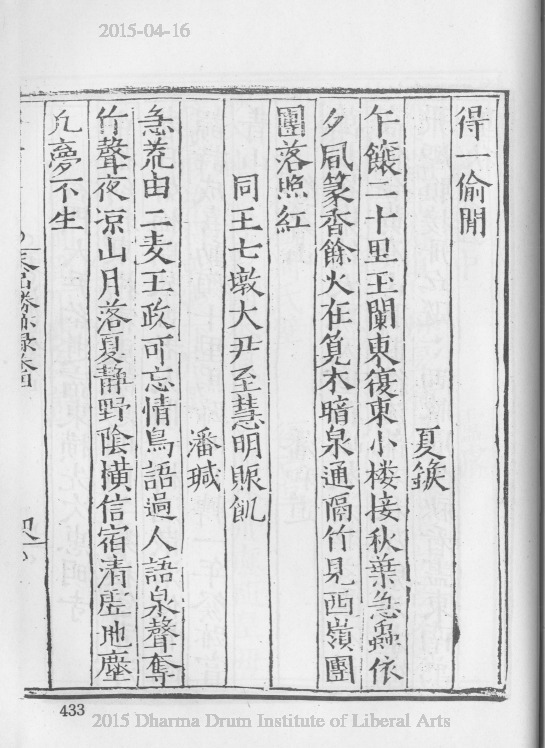 2015-04-16
得一偷閒
夏鍭
午饟二十里王闌東復東小楼接秋葉急蟲依
夕風篆香餘火在筧木暗泉通隔竹見西嶺團
團落照紅
同王七墩大尹至慧明賑飢
潘瑊
急荒由二麦王政可忘情鳥語過人語泉聲奪
竹聲夜凉山月落夏静野陰橫信宿清虚地塵
凡夢不生
433
2015 Dharma Drum Institute of Liberal Arts